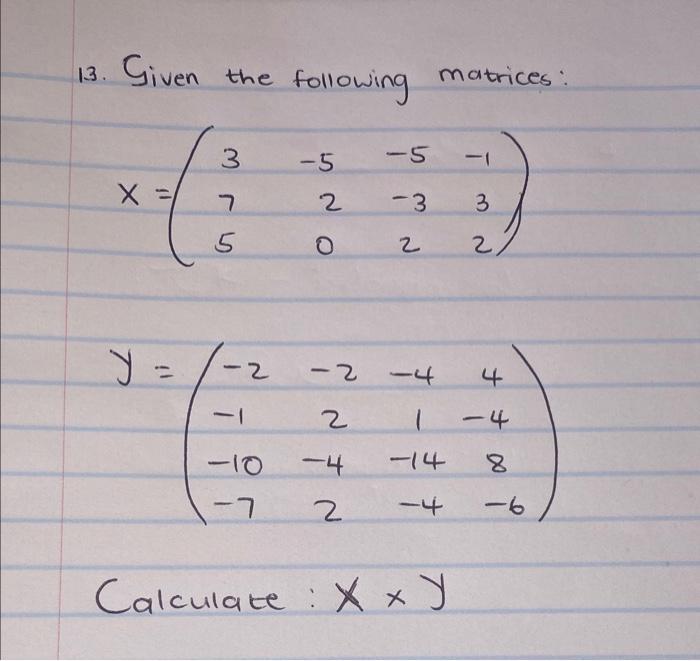 13. Given the following matrices:
3 -5 -5 -1
X = 7 2 -3 3
5 0 2 2
y = -2 -2 -4 4
-1 2 1 -4
-10 -4 -14 8
-7 2 -4 -6
Calculate : X x y